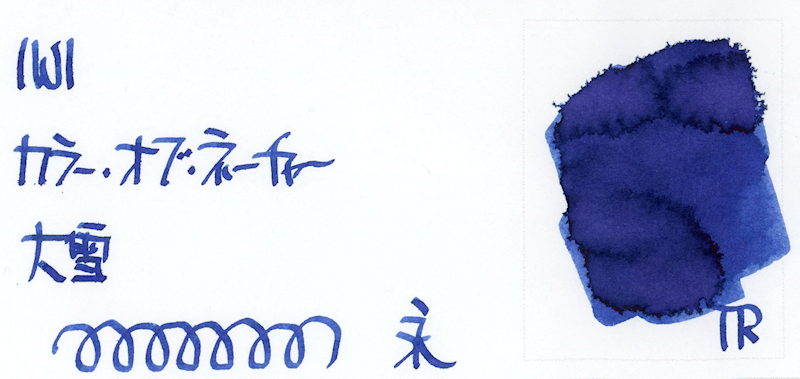 IWI
カラー・オブ・ネーチャー
大雪
永
TR